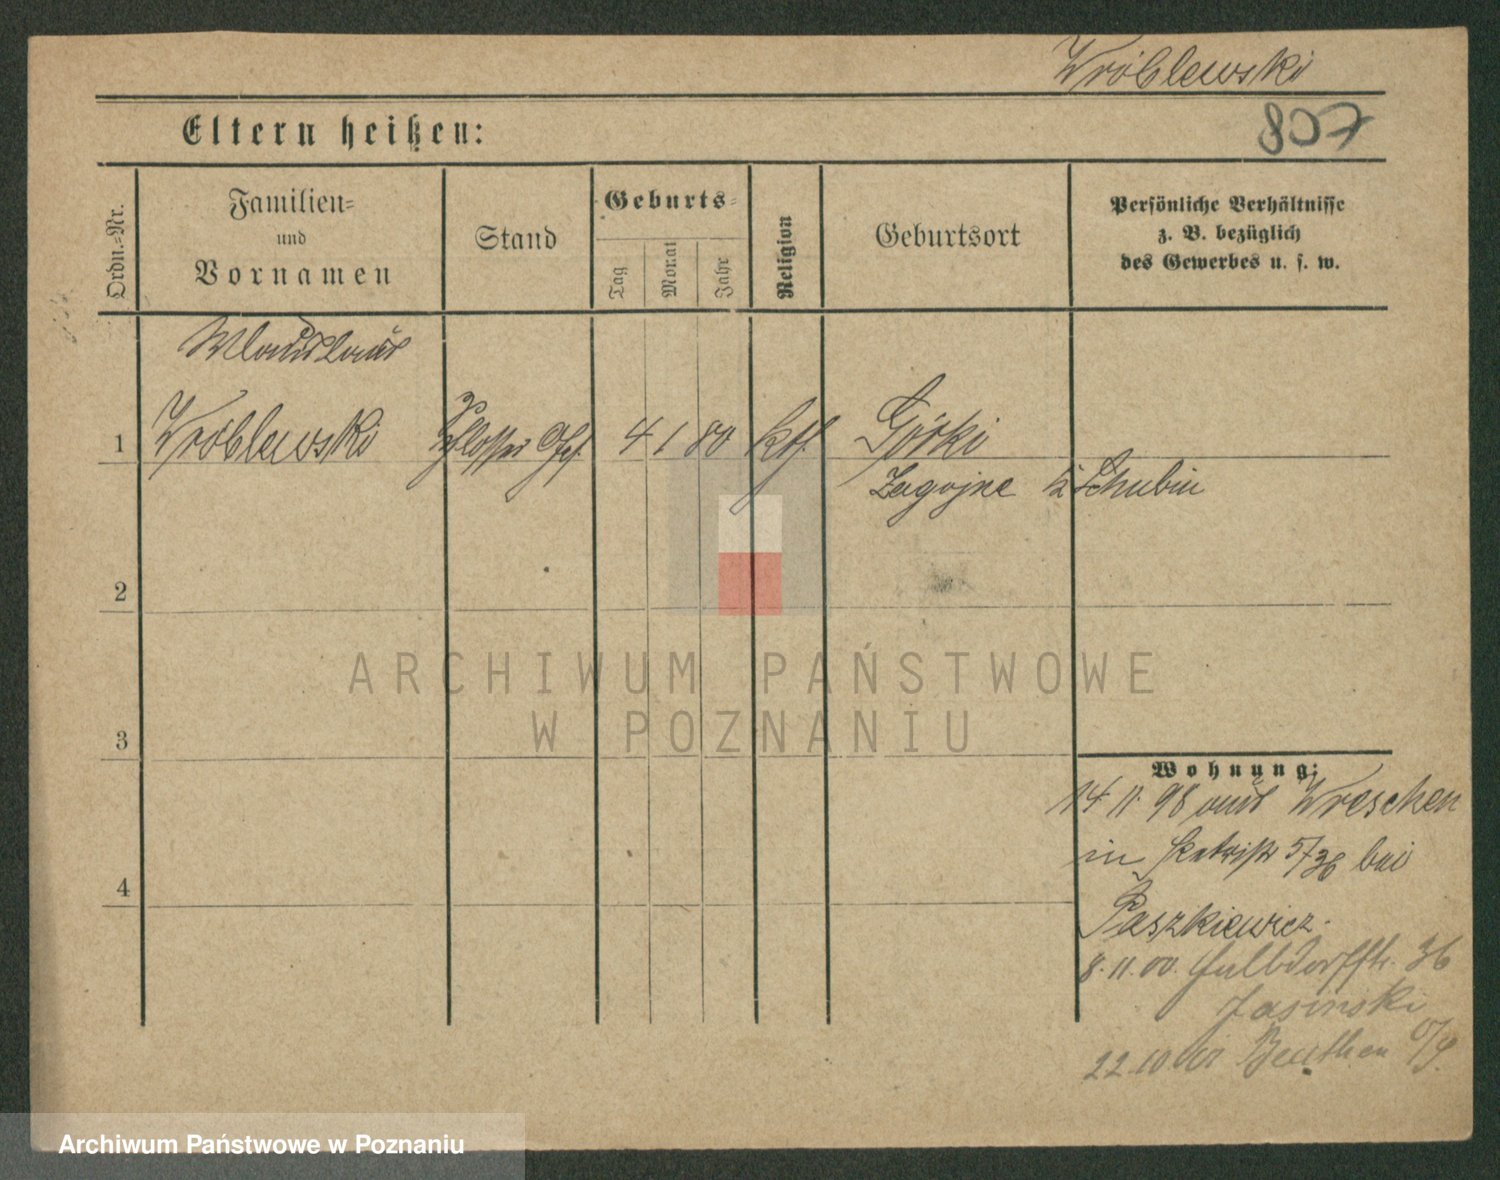 Wróblewski
807
Eltern heißen:
Ordn.=Nr.
Familien=
und
Vornamen
Stand
Geburts=
Tag
Monat
Jahr
Religion
Geburtsort
Persönliche Verhältnisse
z. B. bezüglich
des Gewerbes u. s. w.
Wladislaus
1 Wróblewski Schlosser Ges. 4 1 80 kth. Górki
Zagojne k. Schubin
2
3
4
Wohnung:
14.11.98 aus Wreschen
in 5/36 bei
Paszkiewicz.
8.11.00. 36
Jasinski
22.10.01 Beuthen O/S.
ARCHIWUM PAŃSTWOWE
W POZNANIU
Archiwum Państwowe w Poznaniu